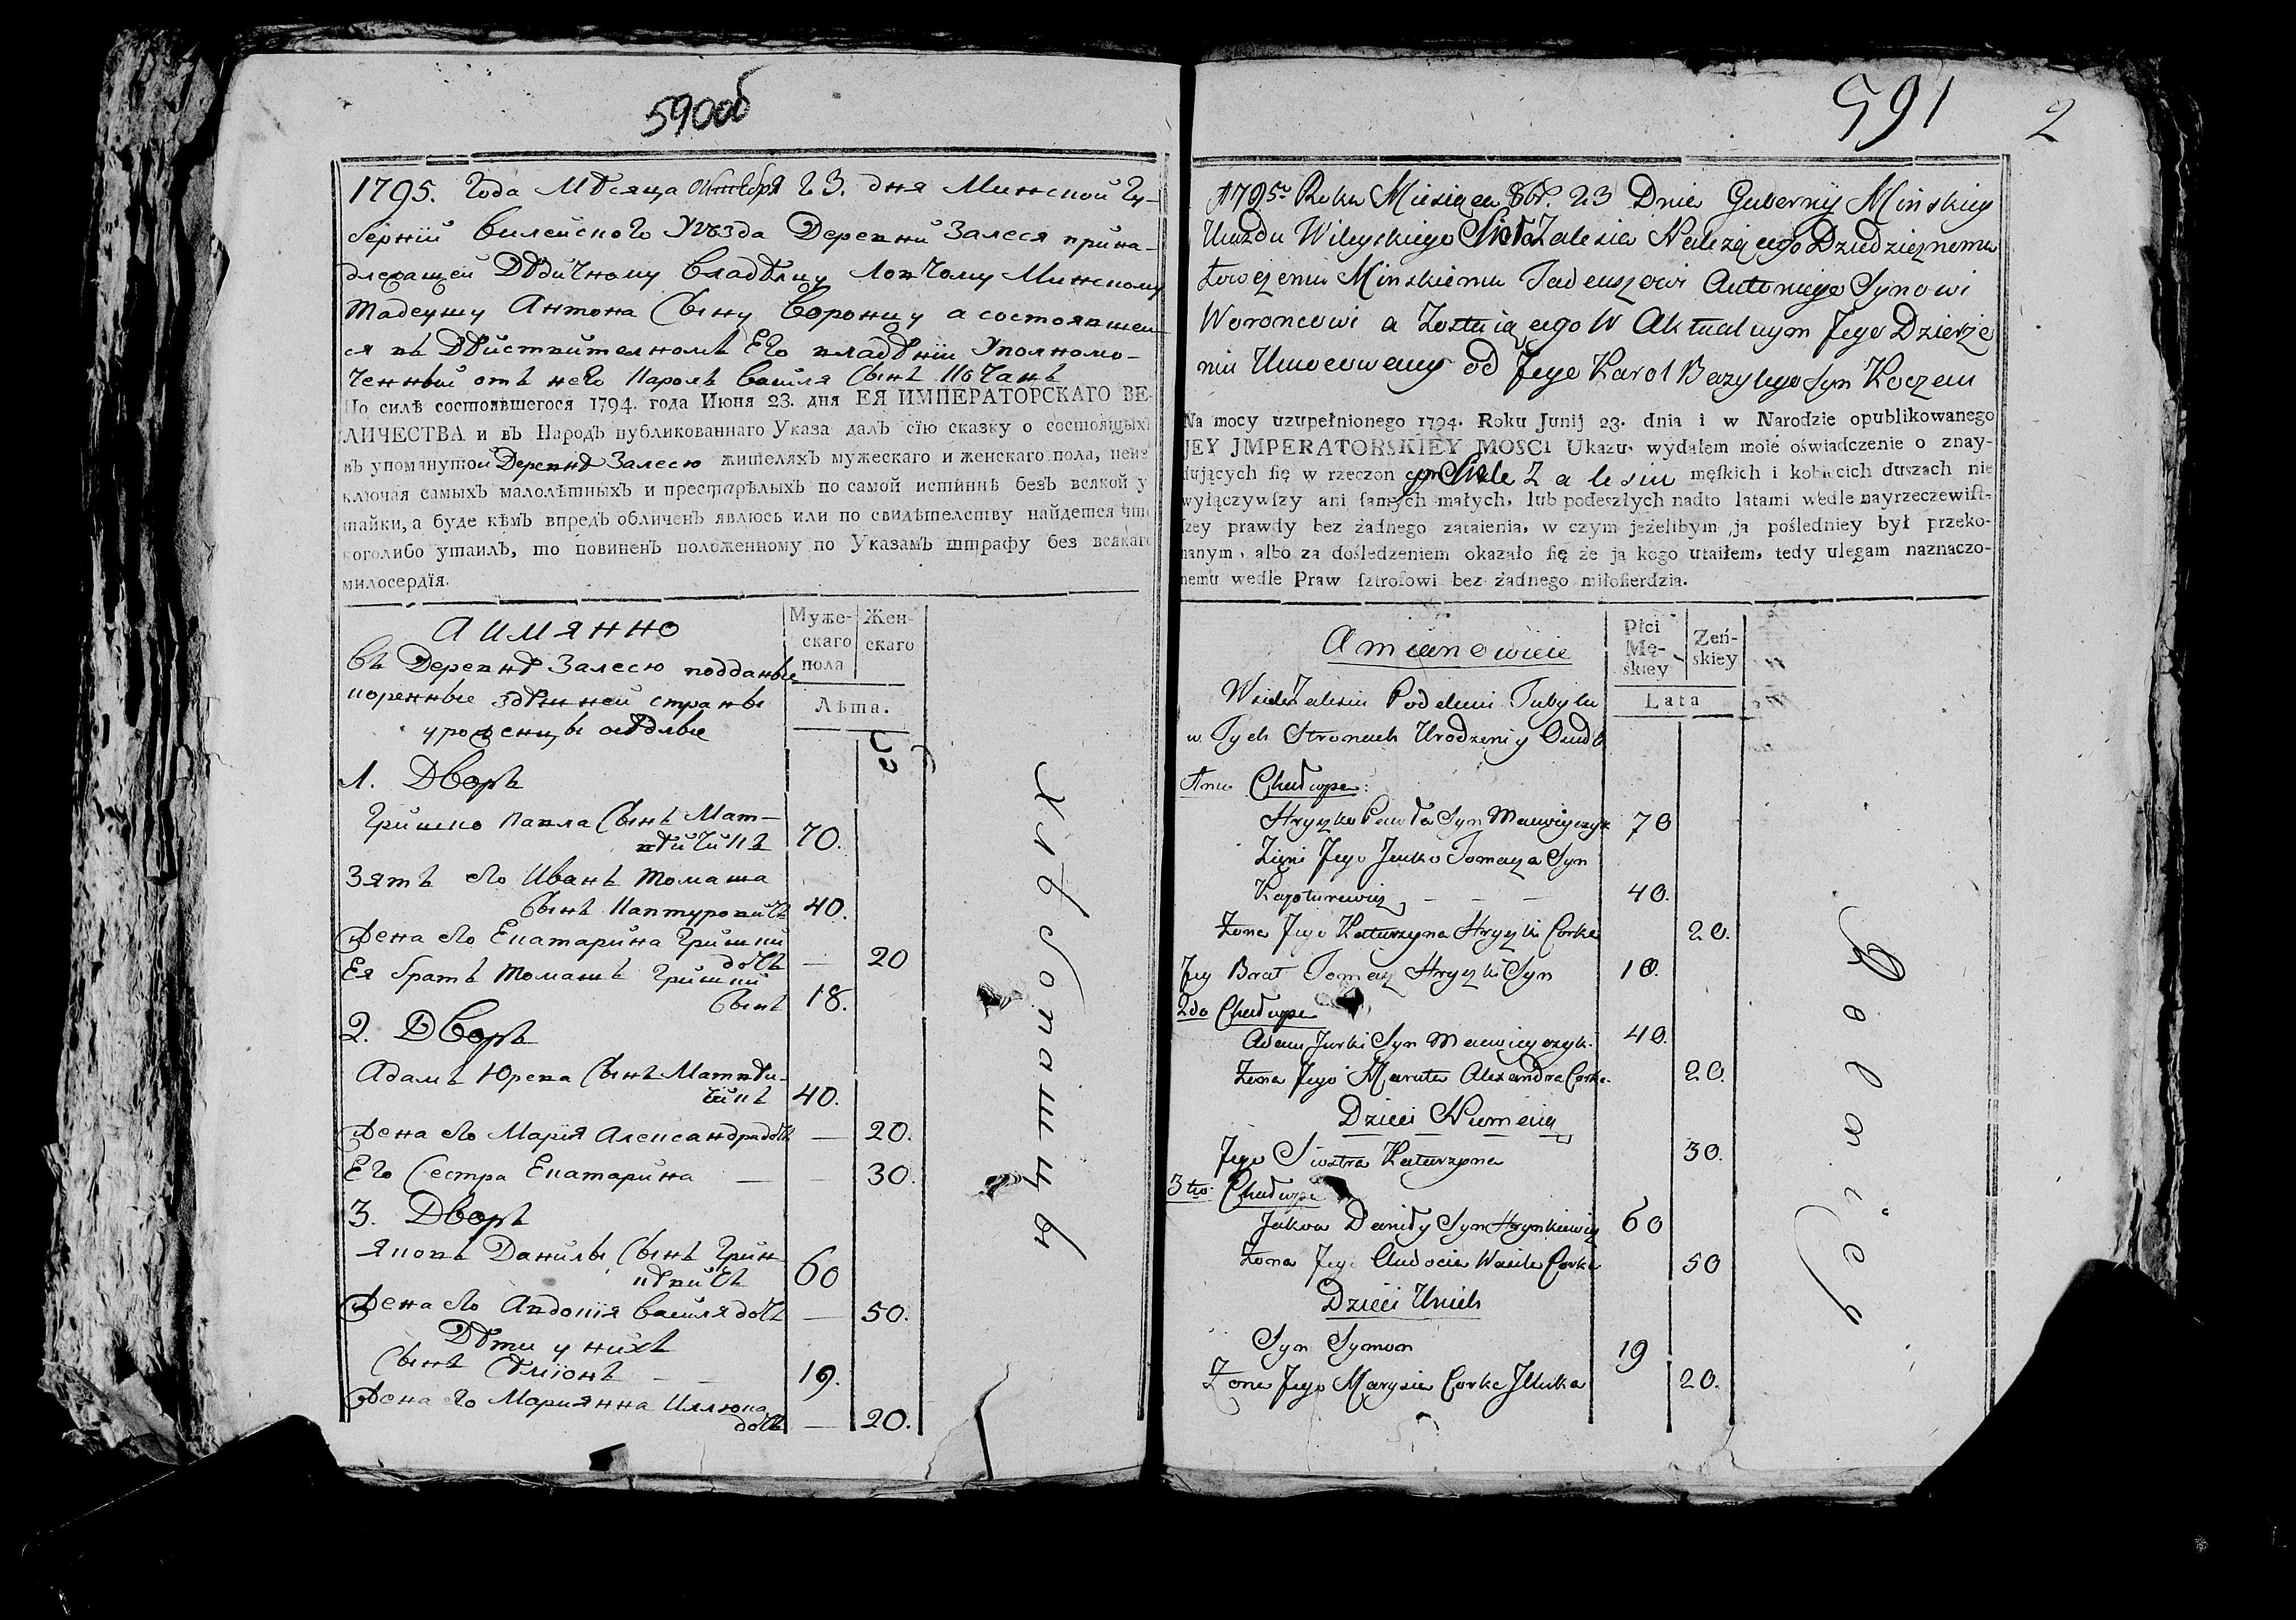 590об
1795. Года Мѣсяца Октября 23. дня Минской Гу-
берніи Вилейского Уѣзда Деревни Залеся прина-
длежащей Дѣдичному Владѣлцу Ловчому Минскому
Тадеушу Антона Сыну Воронцу а состоявшей-
ся въ Дѣйствителномъ Его владѣніи Уполномо-
ченный отъ него Кароль Василя Сынъ Кочанъ
По силѣ состоявшегося 1794. года Июня 23. дня ЕЯ ИМПЕРАТОРСКАГО ВЕ-
ЛИЧЕСТВА и въ Народъ публикованнаго Указа далъ сїю сказку о состоящыхъ
въ упомянутой Деревнѣ Залесю жителяхъ мужескаго и женскаго пола, неиз
ключая самыхъ малолѣтныхъ и престарѣлыхъ по самой истиннѣ безъ всякой у
тайки, а буде кѣмъ впредъ обличенъ явлюсь или по свидѣтелству найдется что
коголибо утаилъ, то повиненъ положенному по Указамъ штрафу без всякаго
милосердїя.
Аимянно
Муже-
скаго
пола
Жен-
скаго
Лѣта.
Въ Деревнѣ Залесю подданые
коренные здѣшней страны
уроженцы осѣдлые
1. Дворъ
Гришко Павла Сынъ Мат-
вѣйчикъ 70.
Зять его Иванъ Томаша
Сынъ Каптуровичъ 40.
Жена его Екатарина Гришки
дочь — 20
Ея братъ Томашъ Гришки
Сынъ 18.
2. Дворъ
Адамъ Юрка Сынъ Матвѣй-
чикъ 40.
Жена его Марія Александра дочь — 20.
Его Сестра Екатарина — — 30.
3. Дворъ
Яковъ Данилы Сынъ Грин-
кѣвичъ 60
Жена его Авдотія Василя дочь — 50.
Дѣти у нихъ
Сынъ Сѣмїонъ — — 19.
Жена его Марянна Иллюка
дочь — 20.
591
2
1795º Roku Miesiąca 8br. 23 Dnia Gubernij Minskiey
Uiazdu Wileyskiego Sioła Zalesia Należącego Dziedzicznemu
Łowczemu Minskiemu Tadeuszowi Antoniego Synowi
Woroncowi a Zostaiącego W Aktualnym Jego Dzierże
niu Umocowany od Jego Karol Bazylego Syn Koczan
Na mocy uzupełnionego 1794. Roku Junij 23. dnia i w Narodzie opublikowanego
JEY JMPERATORSKIEY MOSCI Ukazu wydałem moie oświadczenie o znay-
dujących ſię w rzeczon ym Siele Zalesiu męſkich i kobiecich duszach nie
wyłączywſzy ani ſamych małych, lub podeszłych nadto latami wedle nayrzeczewiſt-
ſzey prawdy bez żadnego zataienia, w czym jeżelibym ja poſledniey był przeko-
nanym, albo za doſledzeniem okazało ſię że ja kogo utaiłem, tedy ulegam naznaczo-
nemu wedle Praw ſztrofowi bez żadnego miłoſierdzia.
Amianowicie
Płci
Mę-
skiey
Zeń-
skiey
Lata
W siele Zalesiu Poddani Tubylcy
w Tych Stronach Urodzeni y Osiedli
1mo Chałupa:
Hryszko Pawła Syn Macwieyczyk 70
Zięć Jego Janko Tomasza Syn
Kapturewicz — — — 40.
Żona Jego Katarzyna Hryszki Corka 20.
Jey Brat Tomasz Hryszki Syn 18.
2do Chałupa
Adam Jurki Syn Macwieyczyk. 40.
Żona Jego Maruta Alexandra Corka. 20.
Dzieci Niemaią
Jego Siostra Katarzyna 30.
3tio. Chałupa
Jakow Daniły Syn Hrynkiewicz 60
Żona Jego Audocia Wasila Corka 50
Dzieci Unich
Syn Symon 19
Żona Jego Marysia Corka Jlluka 20.